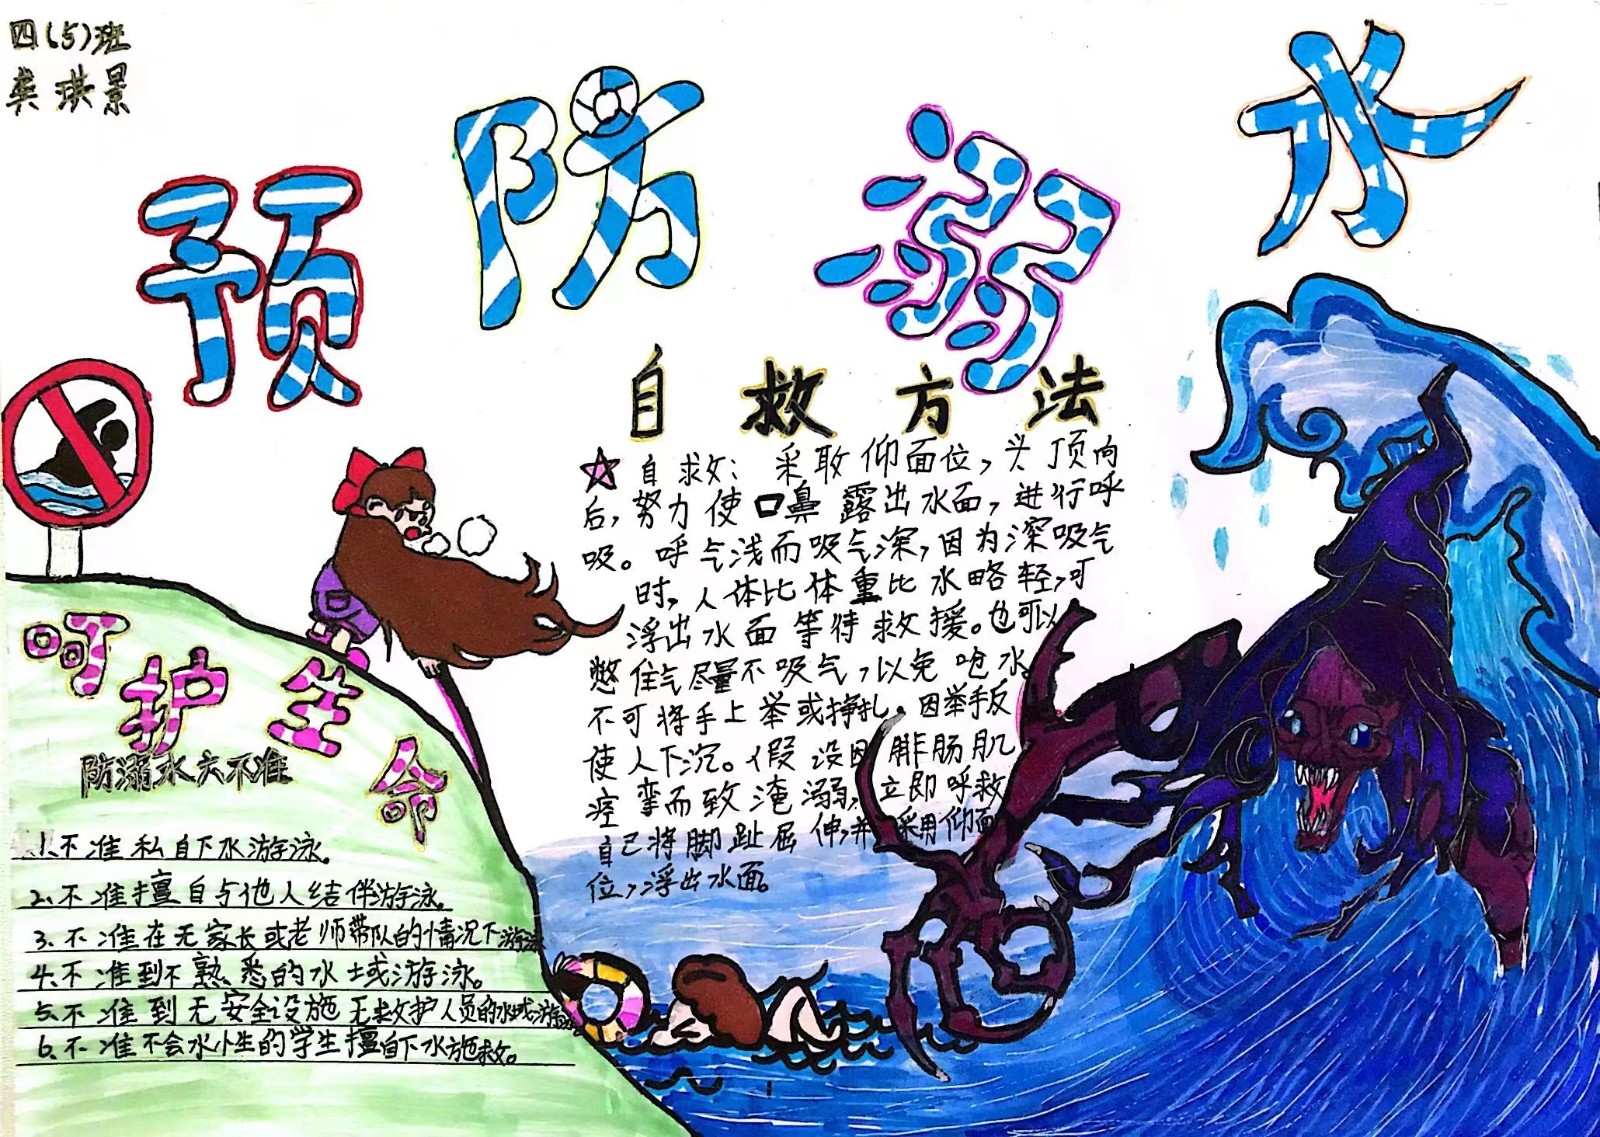 四(5)班
龚琪景
预防溺水
自救方法
自救：采取仰面位，头顶向
后，努力使口鼻露出水面，进行呼
吸。呼气浅而吸气深，因为深吸气
时，人体比体重比水略轻，可
浮出水面等待救援。也可以
憋住气尽量不吸气，以免呛水。
不可将手上举或挣扎。因举手反
使人下沉。假设因腓肠肌
痉挛而致淹溺，立即呼救
自己将脚趾屈伸，并采用仰面
位，浮出水面。
呵护生命
防溺水六不准
1.不准私自下水游泳。
2.不准擅自与他人结伴游泳。
3.不准在无家长或老师带队的情况下游泳
4.不准到不熟悉的水域游泳。
5.不准到无安全设施无救护人员的水域游泳
6.不准不会水小生的学生擅自下水施救。